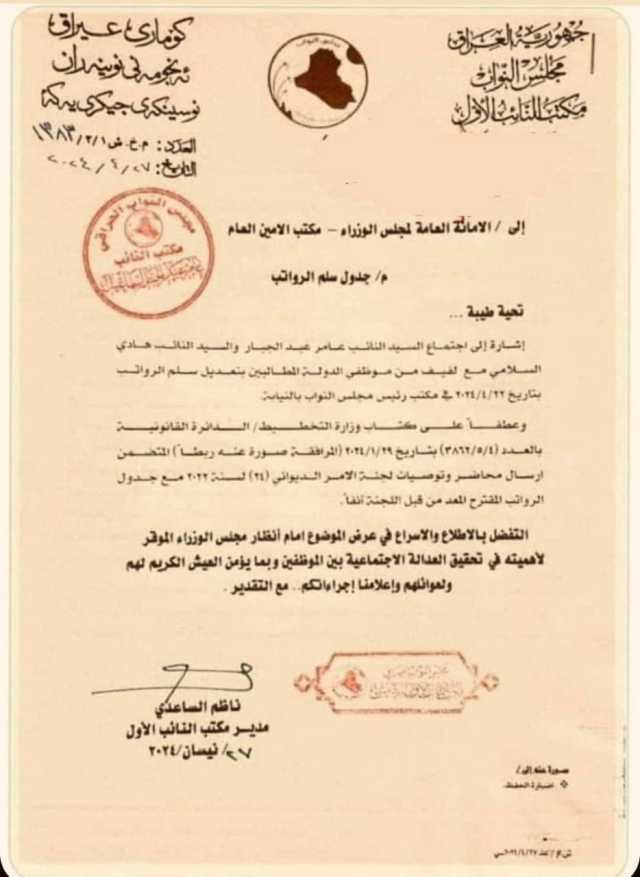 جمهورية العراق
مجلس النواب
مكتب النائب الأول
كوماری عیراق
ئه‌نجومه‌نی نوینه‌ران
نوسینگه‌ی جیگری یه‌كه‌
العدد: م.خ.ش/٢/١/١٣٨٣
التاريخ: ٢٠٢٤/٤/٢٧
مجلس النواب العراقي
مكتب النائب
إلى / الامانة العامة لمجلس الوزراء – مكتب الامين العام
م/ جدول سلم الرواتب
تحية طيبة ...
إشارة إلى اجتماع السيد النائب عامر عبد الجبار والسيد النائب هادي
السلامي مع لفيف من موظفي الدولة المطالبين بتعديل سلم الرواتب
بتاريخ ٢٠٢٤/٤/٢٢ في مكتب رئيس مجلس النواب بالنيابة.
وعطفاً على كتاب وزارة التخطيط/ الدائرة القانونية
بالعدد (٣٨٦٢/٥/٤) بتاريخ ٢٠٢٤/١/٢٩ (المرافقة صورة عنه ربطاً) المتضمن
ارسال محاضر وتوصيات لجنة الامر الديواني (٢٤) لسنة ٢٠٢٢ مع جدول
الرواتب المقترح المعد من قبل اللجنة آنفاً.
التفضل بالاطلاع والاسراع في عرض الموضوع امام أنظار مجلس الوزراء الموقر
لأهميته في تحقيق العدالة الاجتماعية بين الموظفين وبما يؤمن العيش الكريم لهم
ولعوائلهم وإعلامنا إجراءاتكم.. مع التقدير .
ناظم الساعدي
مدير مكتب النائب الأول
٢٧/ نيسان/٢٠٢٤
صورة عنه إلى/
❖ اضبارة الحفظ.